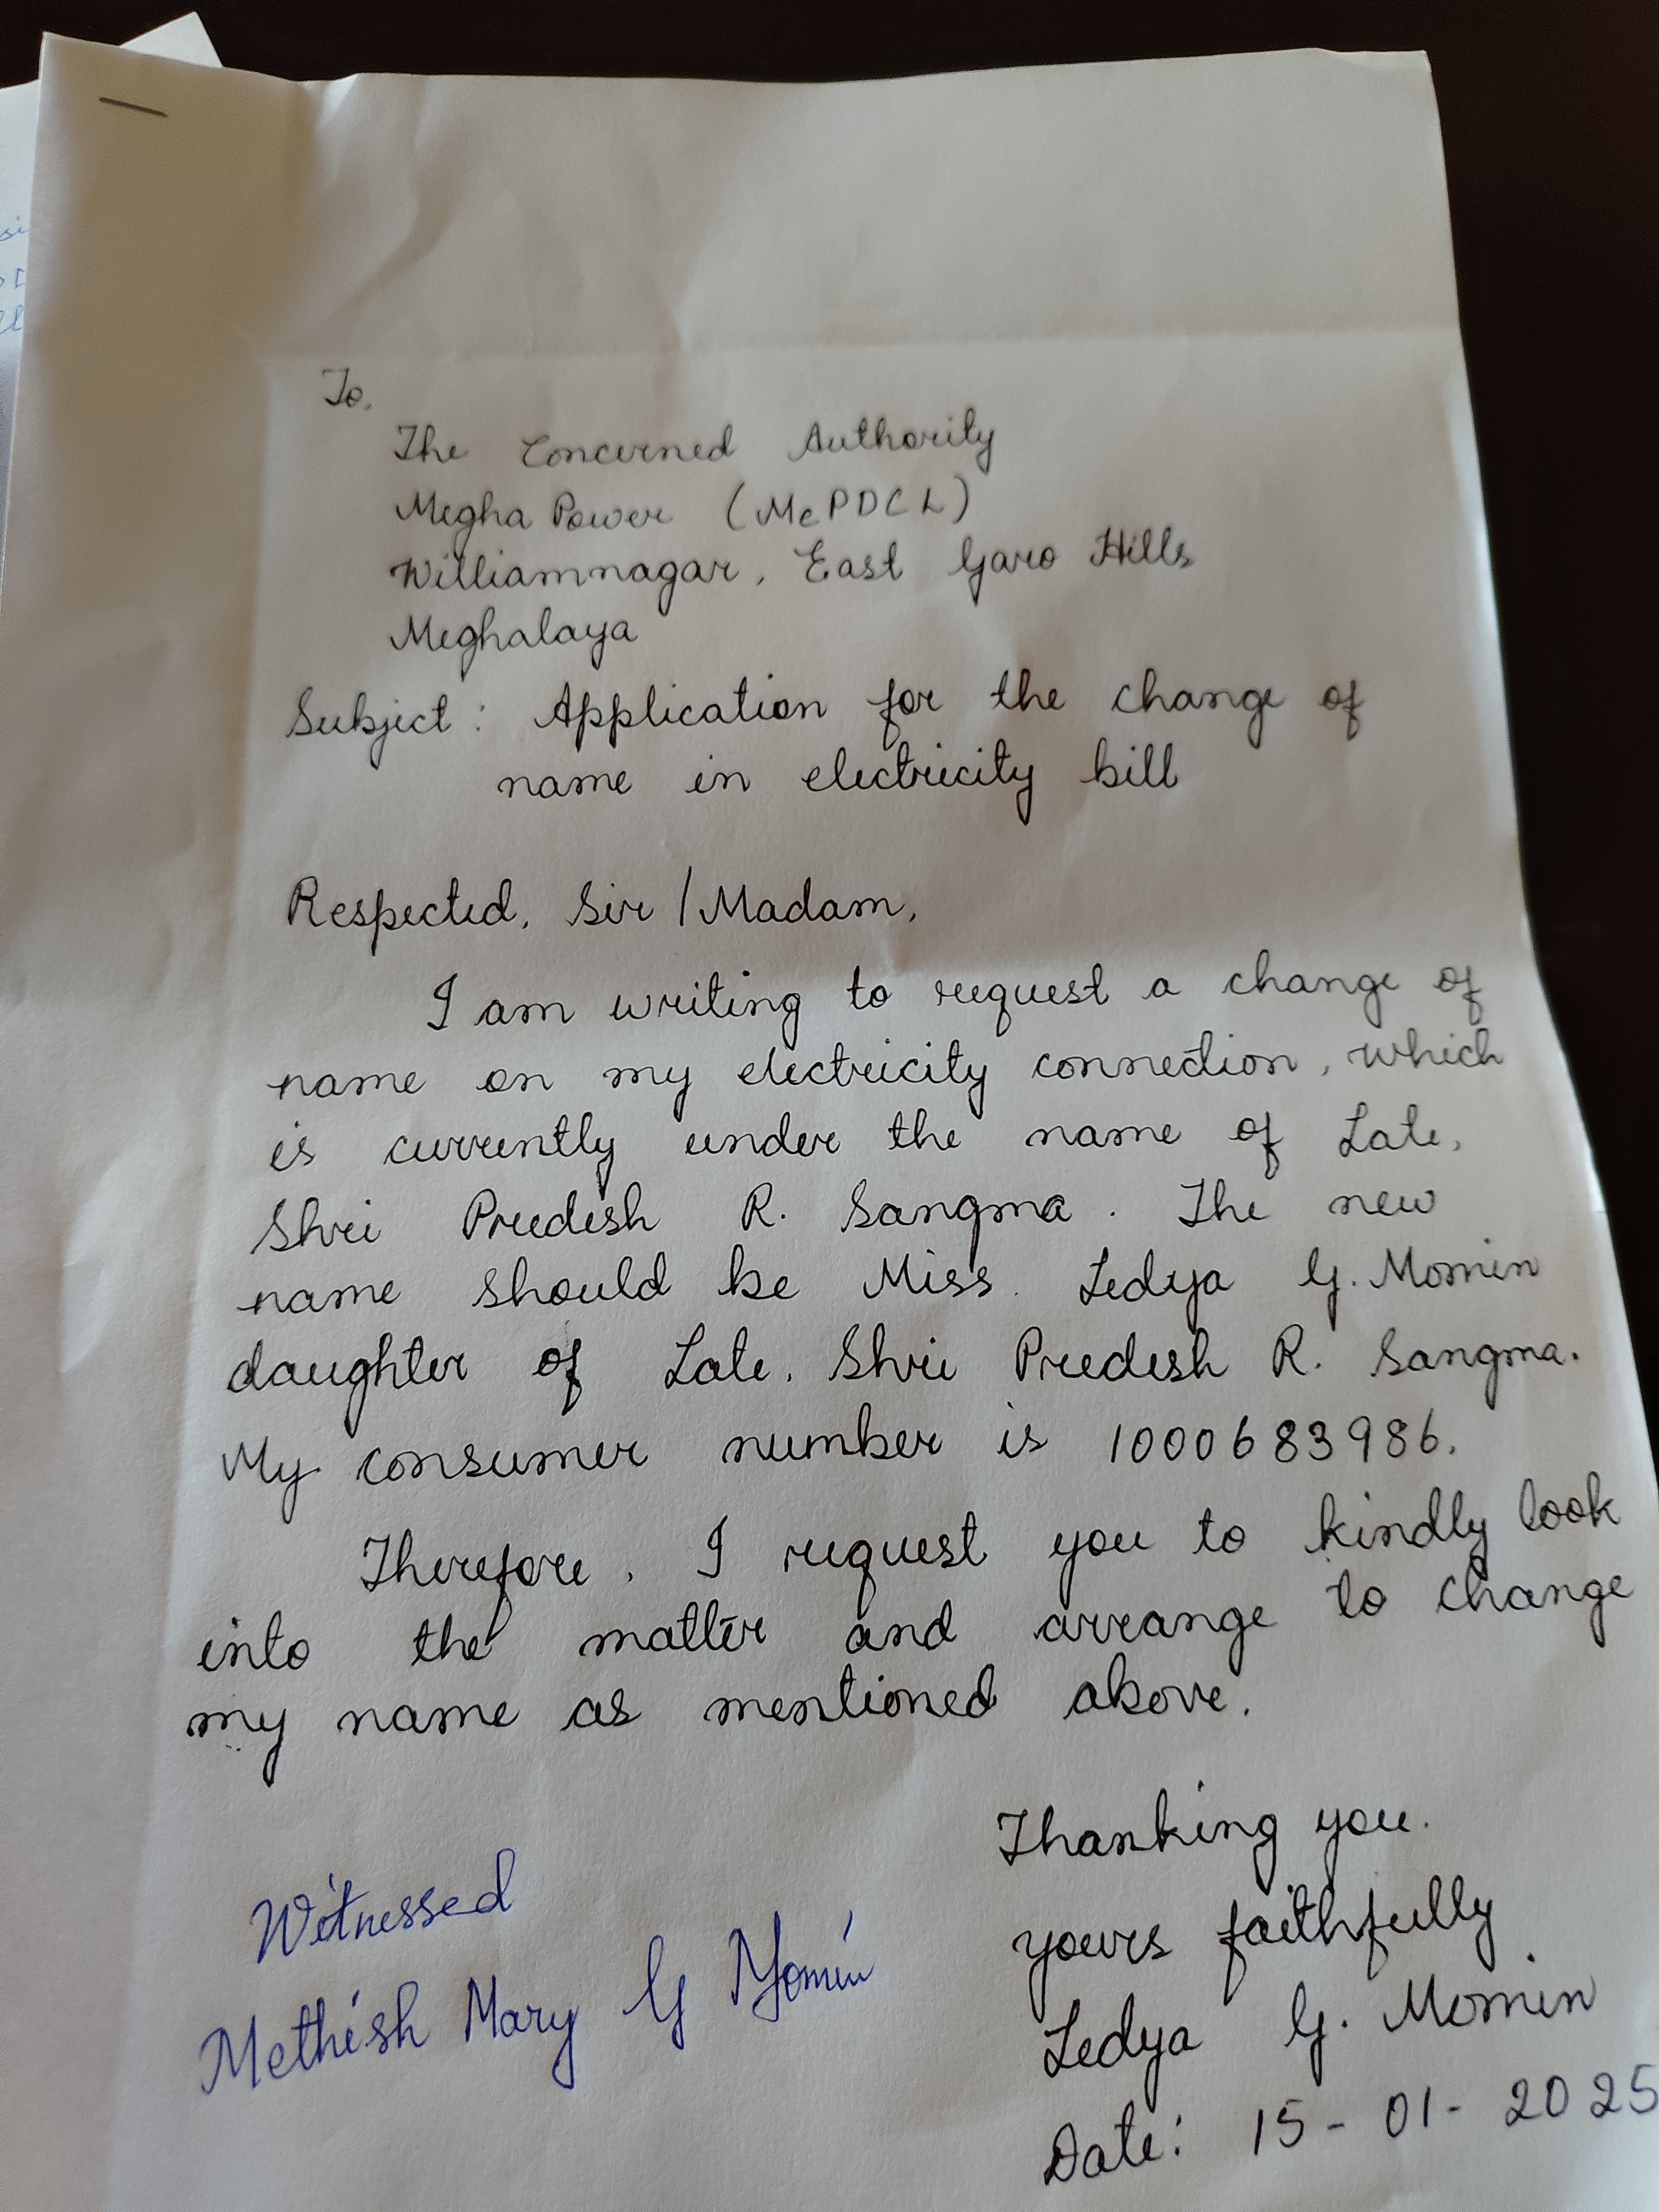 To,
The Concerned Authority
Megha Power (MePDCL)
Williamnagar, East Garo Hills
Meghalaya
Subject : Application for the change of
name in electricity bill
Respected, Sir / Madam,
I am writing to request a change of
name on my electricity connection, which
is currently under the name of Late,
Shri Predesh R. Sangma. The new
name should be Miss. Ledya G. Momin
daughter of Late. Shri Predesh R. Sangma.
My consumer number is 1000683986.
Therefore, I request you to kindly look
into the matter and arrange to change
my name as mentioned above.
Thanking you.
Yours faithfully
Ledya G. Momin
Date: 15-01-2025
Witnessed
Methish Mary G Momin